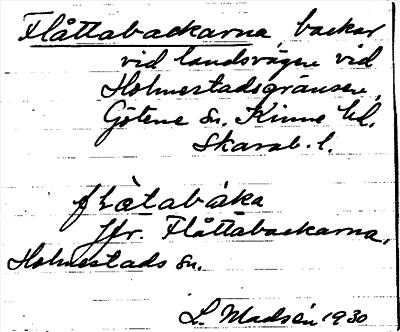 Flåttabackarna, backar
vid landsvägen vid
Holmestadsgränsen,
Götene sn. Kinne hd.
Skarab. l.
flåtabàka
Jfr. Flåttabackarna,
Holmestads sn.
L. Madsén 1930